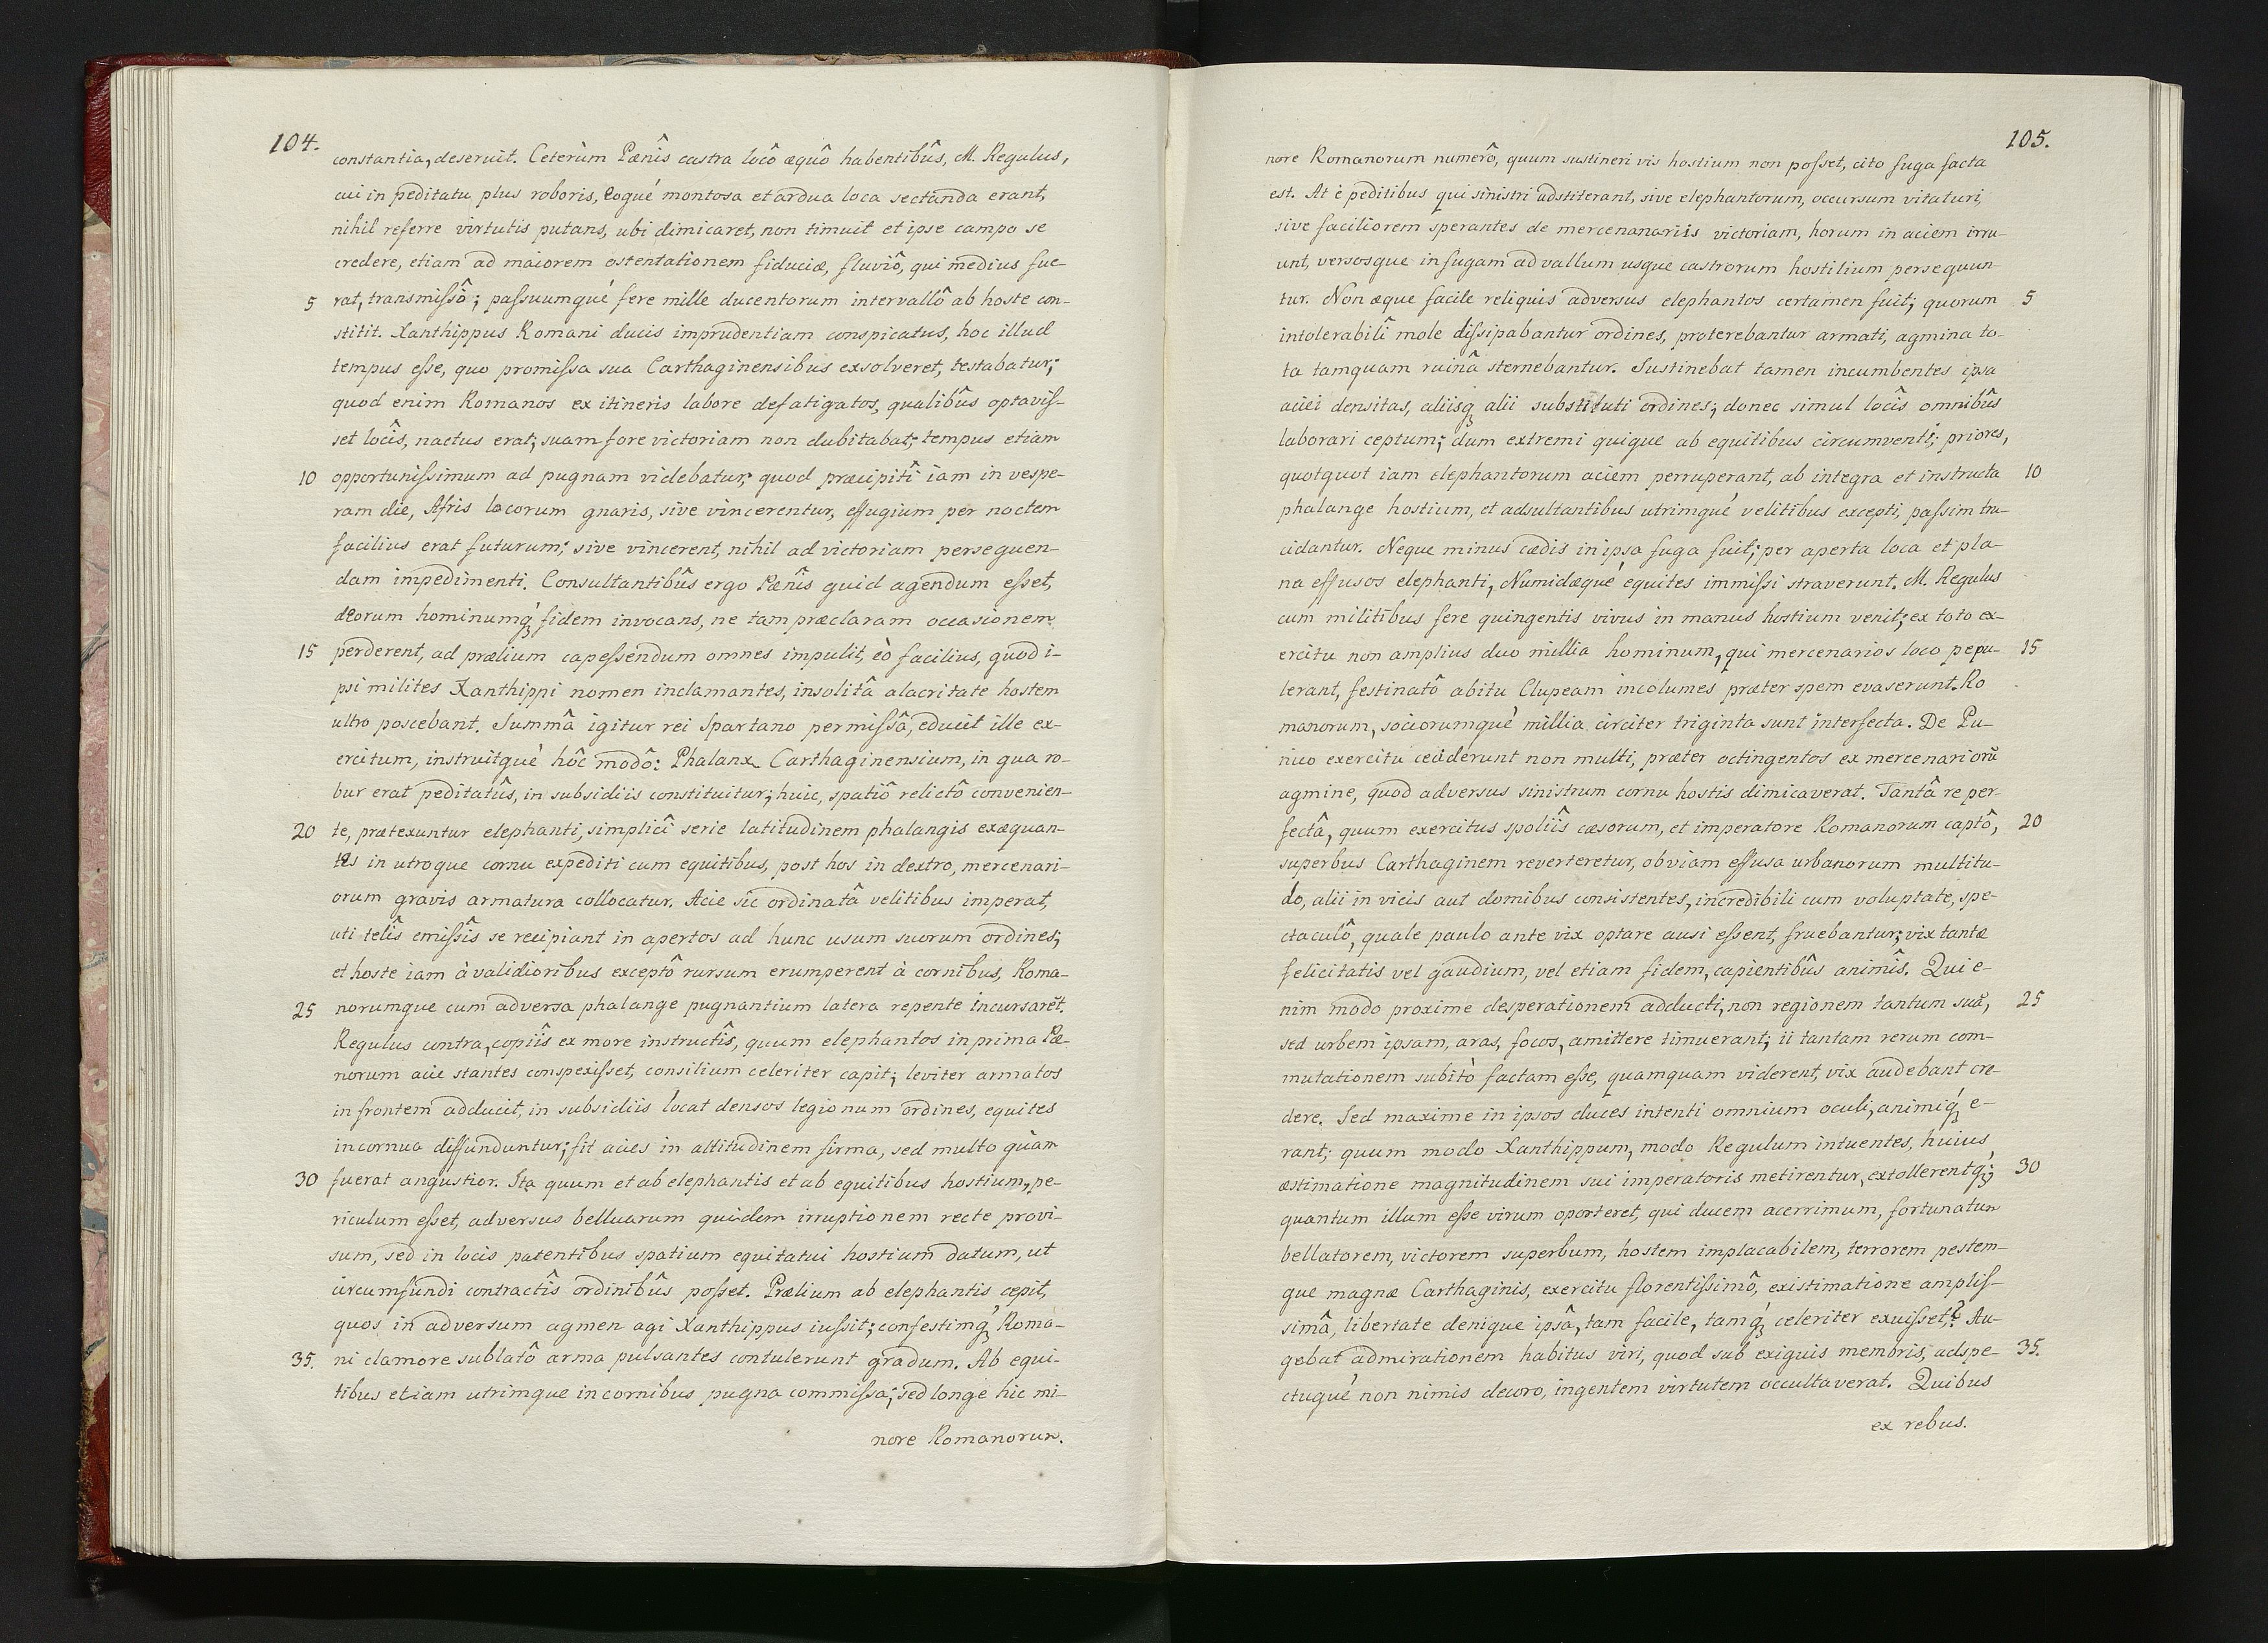 104.
constantia, deseruit. Ceterùm Pænîs castra locô æquô habentibûs, M. Regulus,
cui in peditatu plus roboris, eoqué montosa et ardua loca sectanda erant,
nihil referre virtutis putans, ubi dimicaret, non timuit et ipse campo se
credere, etiam ad maiorem ostentationem fiduciæ, fluviô, qui medius fue-
5 rat, transmissô; passuumqué fere mille ducentorum intervallô ab hoste con-
stitit. Xanthippus Romani ducis imprudentiam conspicatus, hoc illud
tempus esse, quo promissa sua Carthaginensibus exsolveret, testabatur;
quod enim Romanos ex itineris labore defatigatos, qualibûs optavis-
set locîs, nactus erat; suam fore victoriam non dubitabat; tempus etiam
10 opportunissimum ad pugnam videbatur; quod præcipitî iam in vespe-
ram die, Afris locorum gnaris, sive vincerentur, effugium per noctem
facilius erat futurum; sive vincerent, nihil ad victoriam persequen-
dam impedimenti. Consultantibûs ergo Pænîs quid agendum esset,
deorum hominumq́ fidem invocans, ne tam præclaram occasionem
15 perderent, ad prælium capessendum omnes impulit, eò facilius, quod i-
psi milites Xanthippi nomen inclamantes, insolitâ alacritate hostem
ultro poscebant. Summâ igitur rei Spartano permissâ, educit ille ex-
ercitum, instruitqué hôc modô: Phalanx Carthaginensium, in qua ro-
bur erat peditatûs, in subsidiis constituitur; huic, spatiô relictô convenien-
20 te, prætexuntur elephanti, simplicî serie latitudinem phalangis exæquan-
tes in utroque cornu expediti cum equitibus, post hos in dextro, mercenari-
orum gravis armatura collocatur. Acie sic ordinatâ velitibus imperat,
uti telîs emissîs se recipiant in apertos ad hunc usum suorum ordines;
et hoste iam à validioribus exceptô rursum erumperent à cornibus, Roma-
25 norumque cum adversa phalange pugnantium latera repente incursarēt.
Regulus contra, copiîs ex more instructîs, quum elephantos in prima Pæ-
norum acie stantes conspexisset, consilium celeriter capit; leviter armatos
in frontem adducit, in subsidiis locat densos legionum ordines, equites
in cornua diffunduntur; fit acies in altitudinem firma, sed multo quàm
30 fuerat angustior. Ita quum et ab elephantis et ab equitibus hostium, pe-
riculum esset, adversus belluarum quidem irruptionem recte provi-
sum, sed in locis patentibus spatium equitatui hostium datum, ut
circumfundi contractîs ordinibûs posset. Prælium ab elephantis cepit,
quos in adversum agmen agi Xanthippus iussit; confestimq́ Roma-
35. ni clamore sublatô arma pulsantes contulerunt gradum. Ab equi-
tibus etiam utrimque in cornibus pugna commissa; sed longe hic mi-
nore Romanorum.
105.
nore Romanorum numerô, quum sustineri vis hostium non posset, cito fuga facta
est. At è peditibus qui sinistri adstiterant, sive elephantorum, occursum vitaturi,
sive faciliorem sperantes de mercenanariis victoriam, horum in aciem irru-
unt, versosque in fugam ad vallum usque castrorum hostilium persequun-
tur. Non æque facile reliquis adversus elephantos certamen fuit; quorum 5
intolerabilî mole dissipabantur ordines, proterebantur armati, agmina to-
ta tamquam ruinâ sternebantur. Sustinebat tamen incumbentes ipsa
aciei densitas, aliisq́ alii substituti ordines; donec simul locîs omnibûs
laborari ceptum; dum extremi quique ab equitibus circumventi; priores,
quotquot iam elephantorum aciem perruperant, ab integra et instructa 10
phalange hostium, et adsultantibus utrimqué velitibus excepti, passim tru-
cidantur. Neque minus cædis in ipsa fuga fuit; per aperta loca et pla-
na effusos elephanti, Numidæqué equites immissi straverunt. M. Regulus
cum militibus fere quingentis vivus in manus hostium venit; ex toto ex-
ercitu non amplius duo millia hominum, qui mercenarios loco pepu- 15
lerant, festinatô abitu Clupeam incolumes præter spem evaserunt. Ro
manorum, sociorumqué millia circiter triginta sunt interfecta. De Pu-
nico exercitu ceciderunt non multi, præter octingentos ex mercenariorū
agmine, quod adversus sinistrum cornu hostis dimicaverat. Tantâ re per-
fectâ, quum exercitus spoliîs cæsorum, et imperatore Romanorum captô, 20
superbus Carthaginem reverteretur, obviam effusa urbanorum multitu-
do, alii in vicis aut domibus consistentes, incredibili cum voluptate, spe-
ctaculô, quale paulo ante vix optare ausi essent, fruebantur; vix tantæ
felicitatis vel gaudium, vel etiam fidem, capientibûs animîs. Qui e-
nim modo proxime desperationem adducti, non regionem tantum suā, 25
sed urbem ipsam, aras, focos, amittere timuerant; ii tantam rerum com-
mutationem subitò factam esse, quamquam viderent, vix audebant cre-
dere. Sed maxime in ipsos duces intenti omnium oculi, animiq́ e-
rant; quum modo Xanthippum, modo Regulum intuentes, huius
æstimatione magnitudinem sui imperatoris metirentur, extollerentq́; 30
quantum illum esse virum oporteret, qui ducem acerrimum, fortunatum
bellatorem, victorem superbum, hostem implacabilem, terrorem pestem-
que magnæ Carthaginis, exercitu florentissimô, existimatione amplis-
simâ, libertate denique ipsâ, tam facile, tamq́ celeriter exuisset,? Au-
gebat admirationem habitus viri, quod sub exiguis membris, adspe- 35.
ctuqué non nimis decoro, ingentem virtutem occultaverat. Quibus
ex rebus.